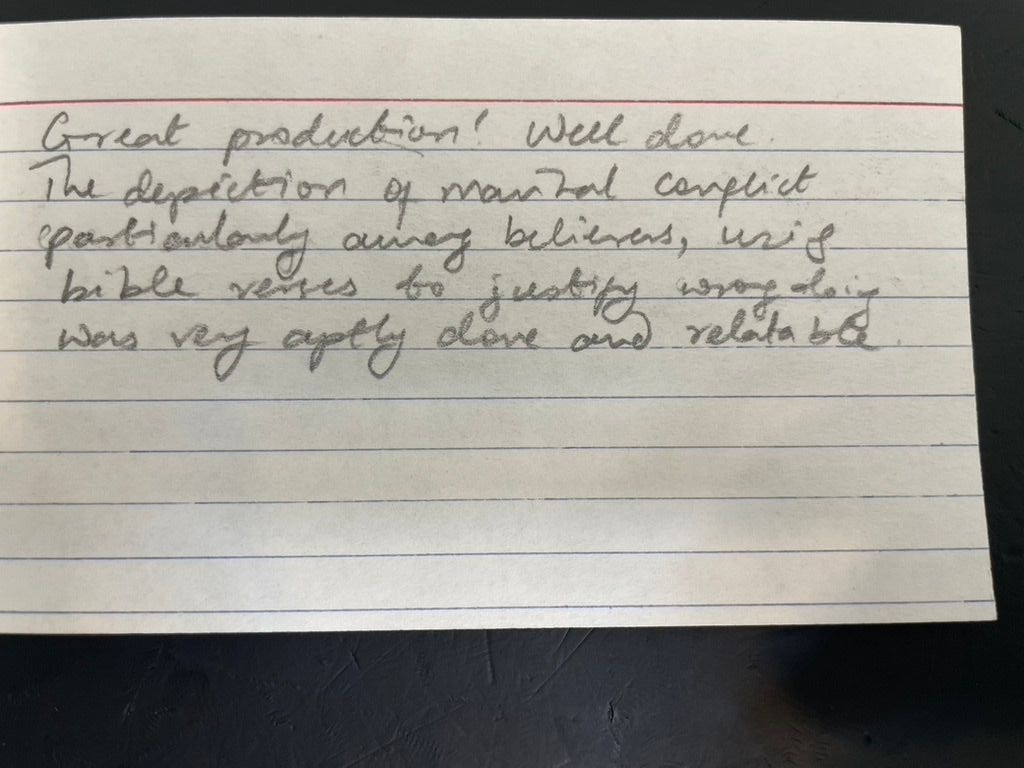 Great production! Well done.
The depiction of marital conflict
particularly among believers, using
bible verses to justify wrong doing
was very aptly done and relatable.